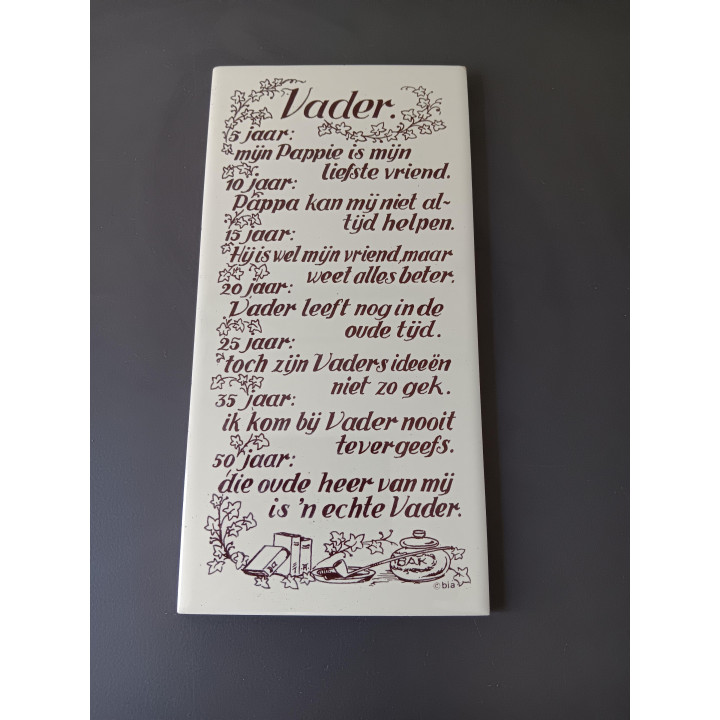 Vader.
5 jaar:
mijn Pappie is mijn
liefste vriend.
10 jaar:
Pappa kan mij niet al-
tijd helpen.
15 jaar:
Hij is wel mijn vriend, maar
weet alles beter.
20 jaar:
Vader leeft nog in de
oude tijd.
25 jaar:
toch zijn Vaders ideeën
niet zo gek.
35 jaar:
ik kom bij Vader nooit
tevergeefs.
50 jaar:
die oude heer van mij
is 'n echte Vader.
BAK
© bia